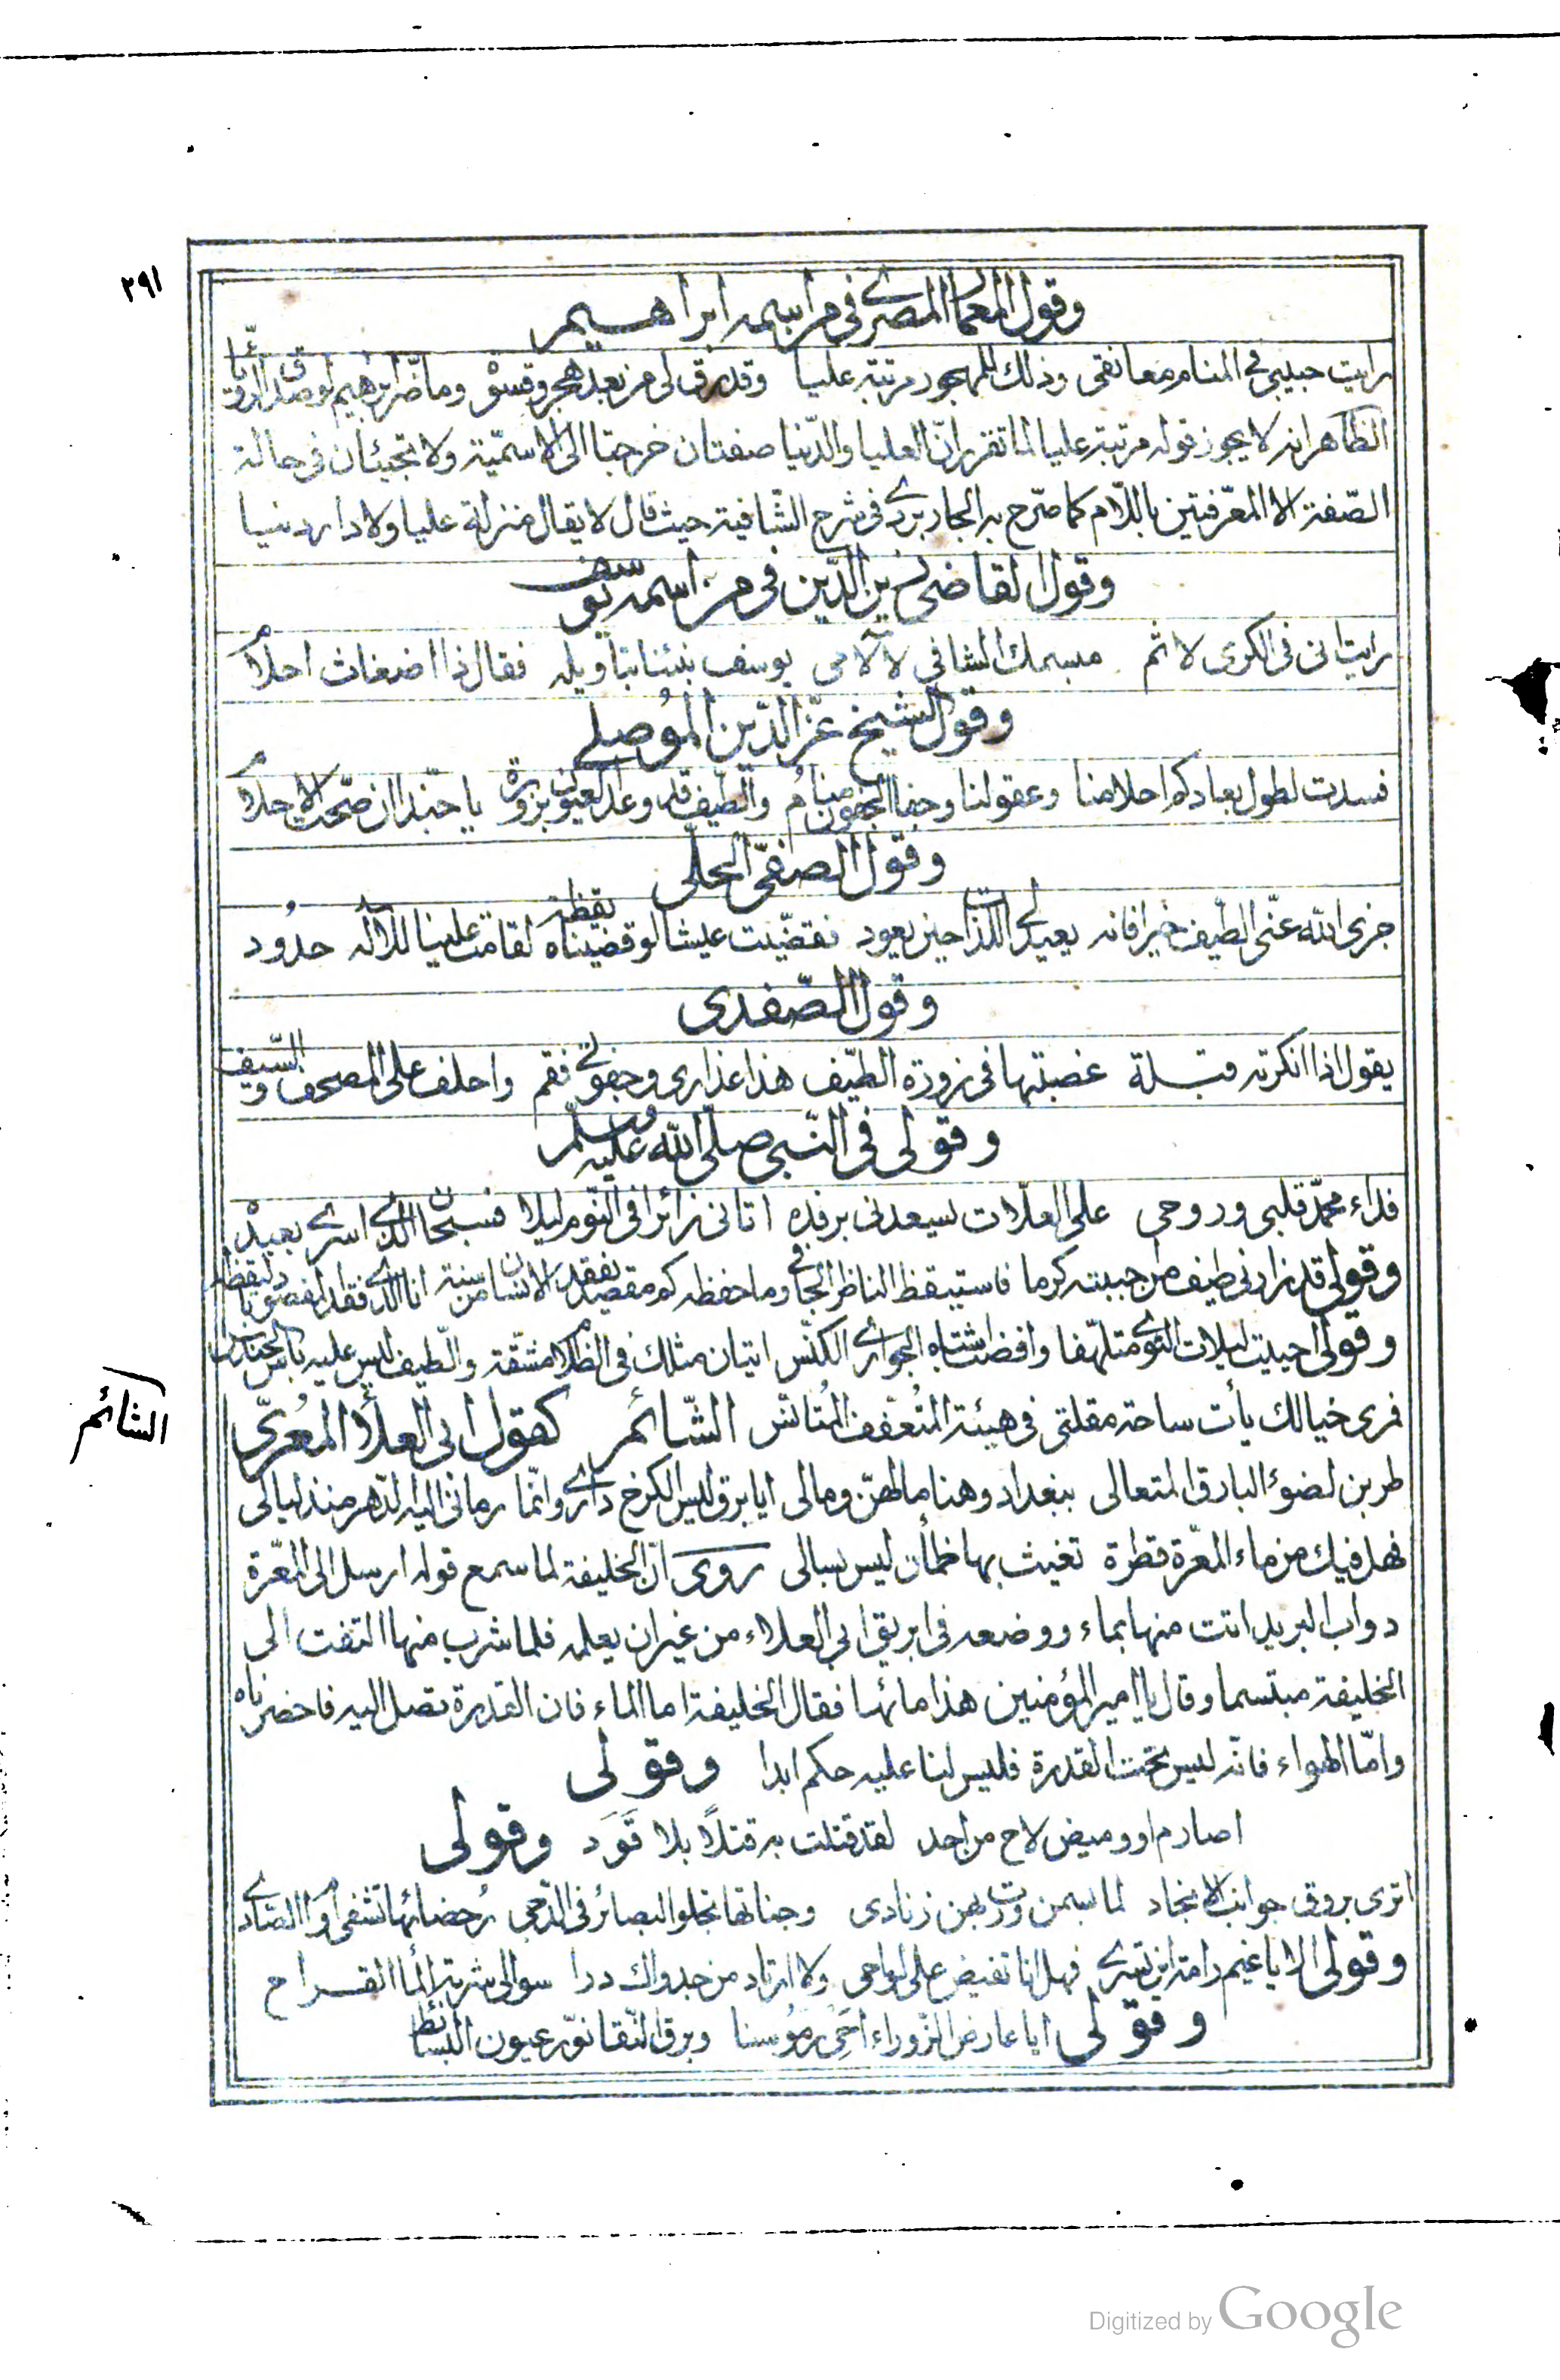 ٢٩١
وقول المعمار المصري في من اسمه ابراهيم
رايت حبيبي في المنام معانقي وذلك للمهجور مرتبة عليا وقد رق لي من بعد هجر وقسوة وما ضر ابرهيم لو صدق الرؤيا
الظاهر انه لا يجوز قوله مرتبة عليا لما تقرر انّ العليا والدّنيا صفتان خرجتا الى الاسميّة ولا تجيئان في حالة
الصّفة الا المعرّفتين باللّام كما صرّح به الجاربردي في شرح الشّافية حيث قال لا يقال منزلة عليا ولا دار دنيا
وقول القاضي زين الدّين في من اسمه يوسف
رايت اني في الكرى لاثم مبسمك الشافي لآلامي يوسف نبئنا بتاويله فقال ذا اضغاث احلام
وقول الشيخ عزّ الدّين الموُصلي
فسدت لطول بعادكم احلامنا وعقولنا وجفا الجفون منامُ والطّيف قد وعد العيون بزورة يا حبّذا ان صحّت الاحلام
وقول الصفيّ الحلّي
جزى اللّه عنّي الطّيف خيرا فانه يعيد لي اللذات حين يعود نقضّيت عيشا لو قضيناه يقظة لقامت علينا للاله حدُود
وقول الصّفدى
يقول اذا انكرته قبلة غصبتها في زورة الطّيف هذا عذاري وجفوني فقم واحلف على المصحف والسّيف
وقولى في النّبي صلّى اللّه عليه وسلّم
فداء محمّد قلبي وروحي على العلّات يسعدنى برفده اتانى زائرا في النّوم ليلا فسبحان الّذي اسرى بعبده
وقولي قد زارنى طيف من حببته كرما فاستيقظ الناظر الجافي وما حفظه كم مقصد يفقد الانسان من سنة انا الذي فقد المقصود باليقظه
وقولي احييت ليلات النّوى متلهّفا وافضت اشتباه الجواري الكنّس اتيان مثلك في الظّلام مشقة والطيف ليس عليه باس الحنّاس
فمرى خيالك يأت ساحة مقلتي في هيئة المُتعفّف المُتانس الشّائم كقول ابي العلاّ المعُرّي
طربن لضوئ البارق المتعالى ببغداد وهنا ما لهنّ وما لى ايا برق ليس الكرخ داري وانّما رمانى اليه الدّهر منذ ليالى
فهل فيك من ماء المعّرة قطرة تغيث بها ظمأن ليس بسالى روى انّ الخليفة لما سمع قوله ارسل الى المعّرة
دواب البريد اتت منها بماء ووضعه في ابريق ابي العلاء من غير ان يعلمه فلما شرب منها التفت الى
الخليفة مبتسما وقال يا امير المؤمنين هذا مائها فقال الخليفة اما الماء فان القدرة تصل اليه فاحضرناه
وامّا الهواء فانّه ليس تحت القدرة فليس لنا عليه حكم ابدا وقولى
اصارم او وميض لاح من احد لقد قتلت به قتلاً بلا قَوَد وقولى
اترى بروق جوانب الانجاد لما بسمن ورت بهن زنادى وجناتها تجلوا البصائر في الدّجى رُحضائها تشفي اوام الصّادي
وقولى الا يا غيم رامة اين تسري فهل انا تفيض على لواحى ولا ارتاد من جدواك دررا سوالى شربة الماء القراح
وقولى ايا عارض الزّوراء احَيِ رمُوسنا وبرق النّقا نوّر عيون البسائط
الشائم
Digitized by Google